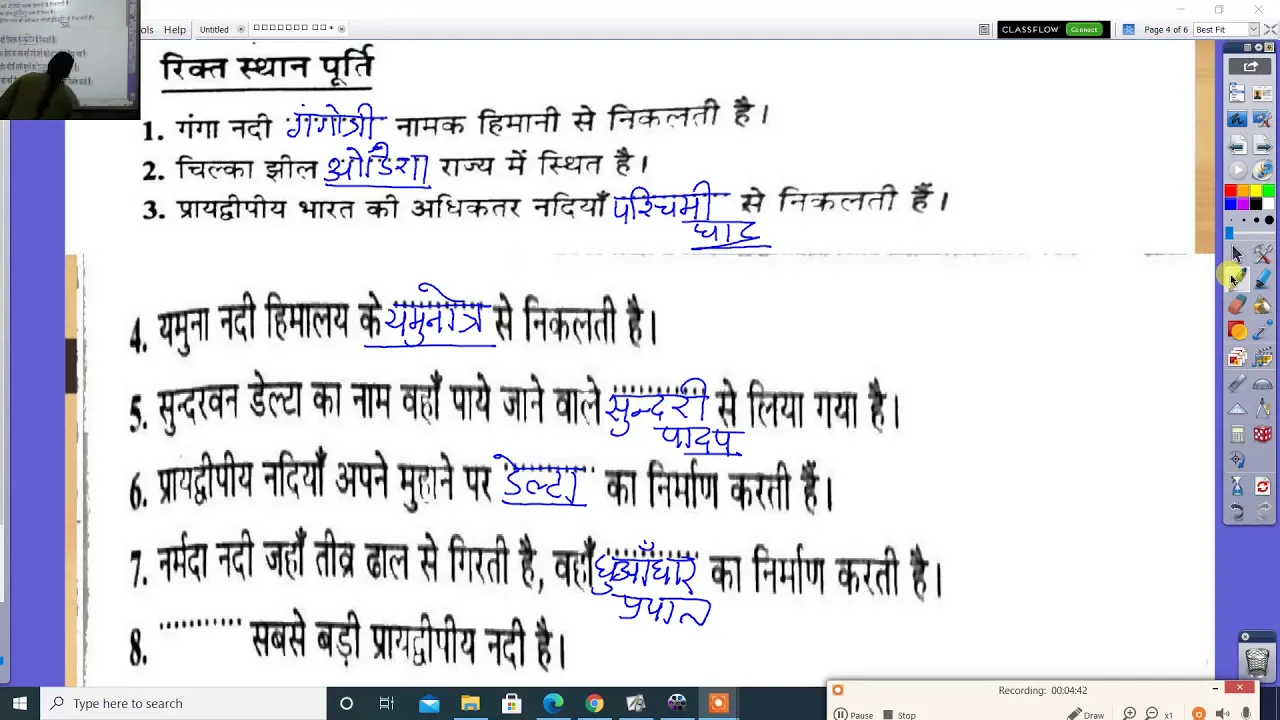 ols Help Untitled
CLASSFLOW Connect
Page 4 of 6 Best Fit
रिक्त स्थान पूर्ति
1. गंगा नदी गंगोत्री नामक हिमानी से निकलती है।
2. चिल्का झील ओडिशा राज्य में स्थित है।
3. प्रायद्वीपीय भारत की अधिकतर नदियाँ पश्चिमी से निकलती हैं।
घाट
4. यमुना नदी हिमालय के यमुनोत्री से निकलती है।
5. सुन्दरवन डेल्टा का नाम वहाँ पाये जाने वाले सुन्दरी से लिया गया है।
पादप
6. प्रायद्वीपीय नदियाँ अपने मुहाने पर डेल्टा का निर्माण करती हैं।
7. नर्मदा नदी जहाँ तीव्र ढाल से गिरती है, वहाँ धुआँधार का निर्माण करती है।
प्रपात
8. ........... सबसे बड़ी प्रायद्वीपीय नदी है।
Type here to search
Recording: 00:04:42
Pause Stop Draw x1